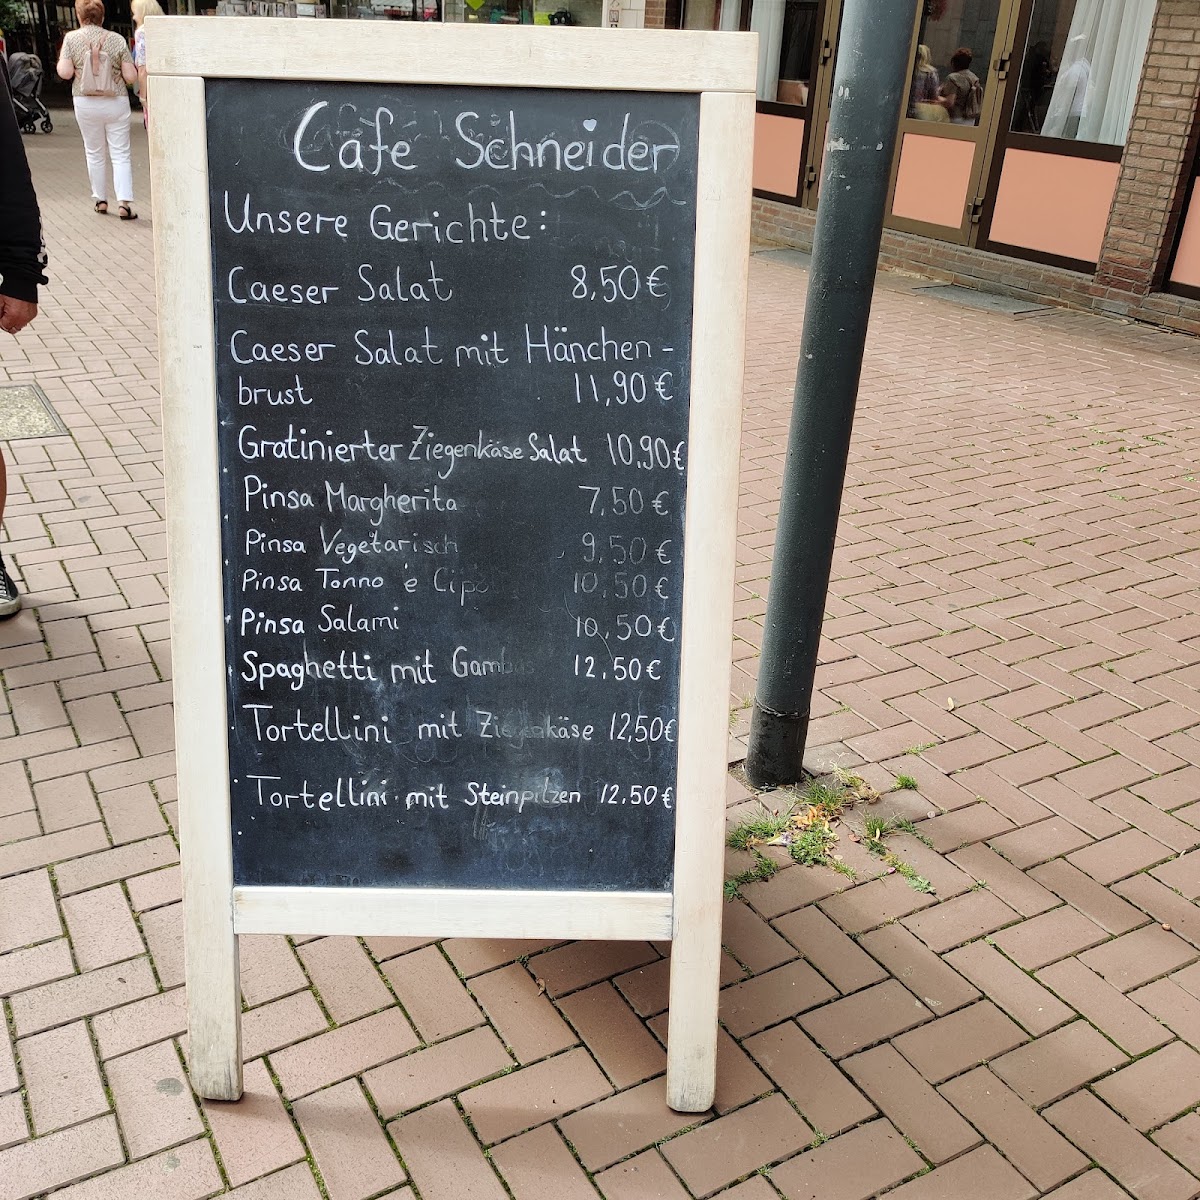 Cafe Schneider
Unsere Gerichte:
Caeser Salat 8,50€
Caeser Salat mit Hänchen-
brust 11,90€
Gratinierter Ziegenkäse Salat 10,90€
Pinsa Margherita 7,50€
Pinsa Vegetarisch 9,50€
Pinsa Tonno e 10,50€
Pinsa Salami 10,50€
Spaghetti mit Gambas 12,50€
Tortellini mit Ziegenkäse 12,50€
Tortellini mit Steinpilzen 12,50€